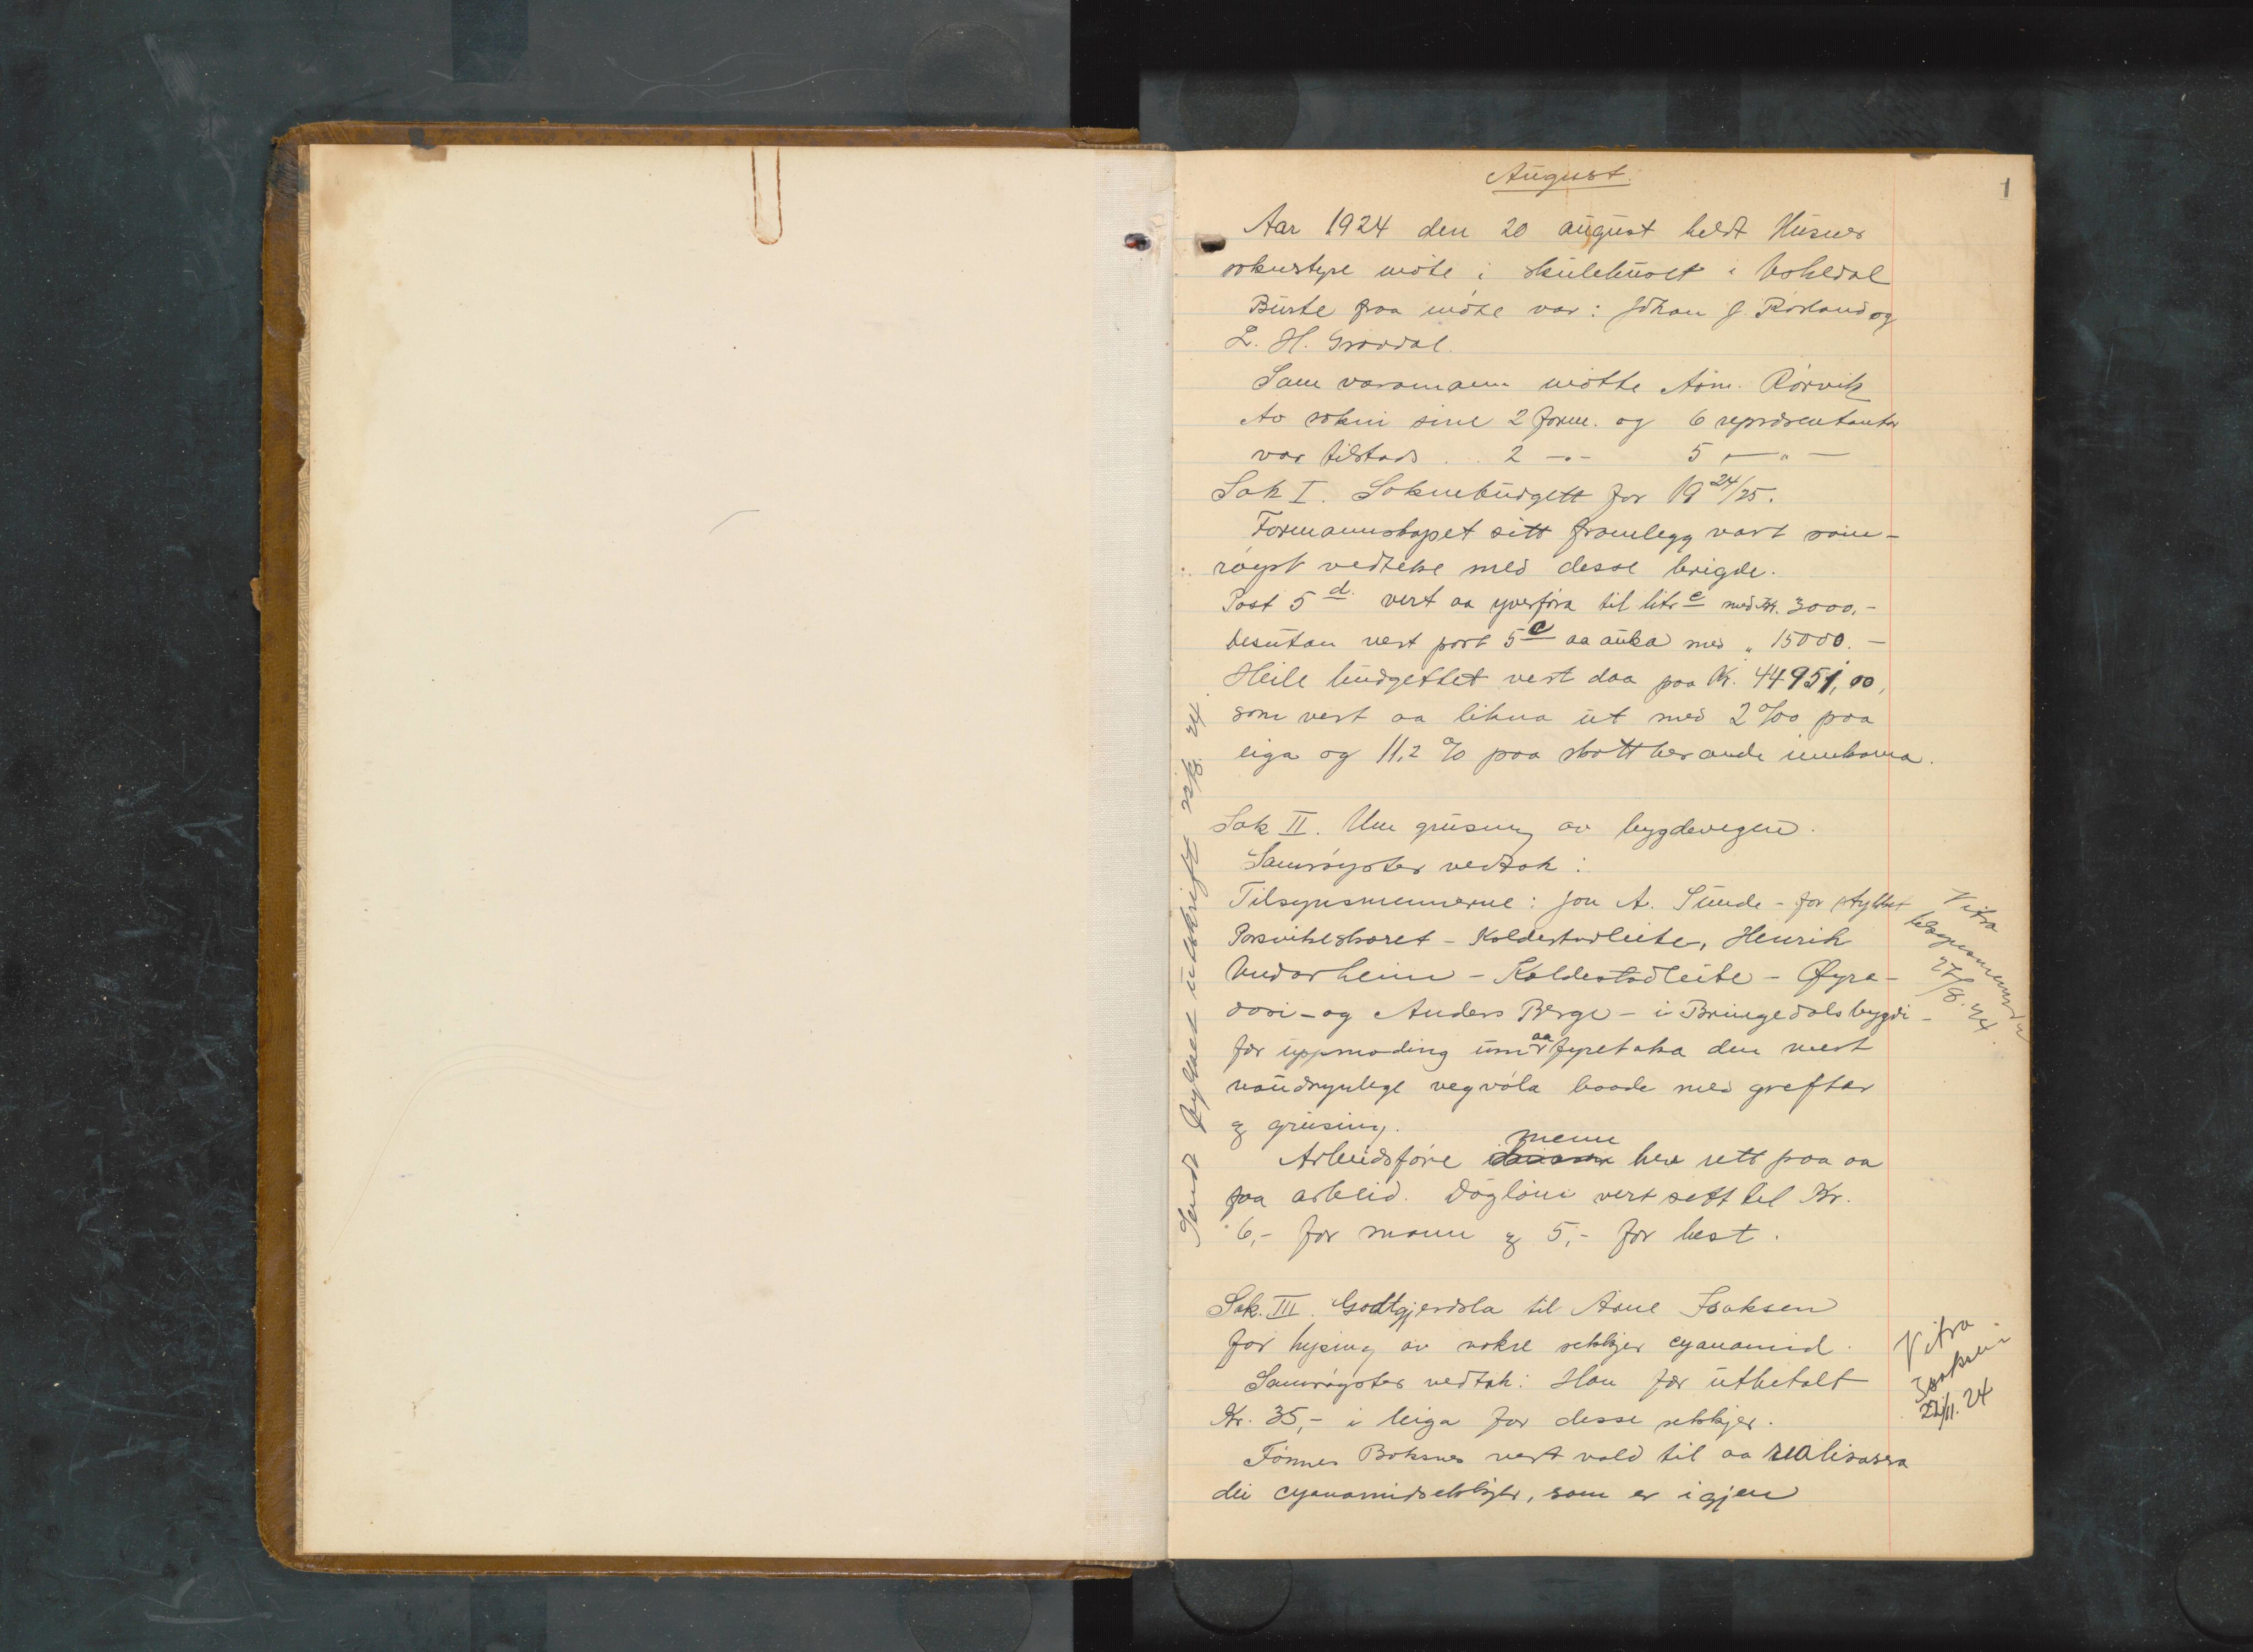 1
August.
Aar 1924 den 20 august heldt Husnes
soknestyre möte i skulehuset i Uskedal
Burte fraa möte var: Johan J. Rörland og
L. H. Gravdal.
Sum varamann mötte Asm. Rörvik
Av sokni sine 2 form. og 6 repræsentantar
var tilstads. . 2 -"- 5 -"-
Sak I. Soknebudgett for 1924/25.
Formannskapet sitt framlegg vart sam-
röyst vedteke med desse brigde.
Post 5 d. vert aa yverföra til litr e med Kr. 3000,-
Desutan vert post 5 e aa auka med " 15000.-
Heile budgettet vert daa paa Kr. 44951,00,
som vert aa likna ut med 2 ‰ paa
eiga og 11,2 % paa skattberande innkoma.
Sak II. Um grusing av bygdevegen.
Samröystes vedtok:
Tilsynsmennerne: Jon A. Sunde - for stykket
- Koldestadleite, Henrik
- Koldestadleite - Øyra-
- og Anders Berge - i Bringedalsbygdi -
fær uppmoding um aa fyretaka den mest
naudsynlege vegvöla baade med grefter
og grusing.
Arbeidsföre menn hev rett paa aa
faa arbeid. Dagløni vert sett til Kr.
6,- for mann og 5,- for hest.
Sak. III. Godtgjerdsla til Arne Isaksen
for hysing av nokre sekkjer cyanamid.
Samröystes vedtok: Han fær utbetalt
Kr. 35,- i leiga for desse sekkjer.
Tönnes Boksnes vert vald til aa realisera
dei cyanamidsekkjer, som er igjen
Sendt fylket utskrift 22/8. 24
Vitra
tilsynsmennene
27/8. 24
Vitra
Isaksen
22/11. 24